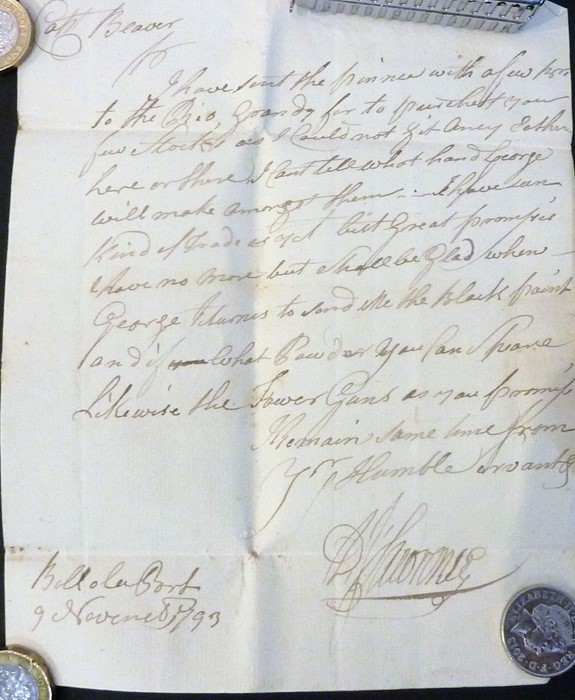 Capt Beaver
Sr
I have sent the pinnce with a few
to the Rio Grandy for to purchest you
few Stocks as I Could not git aney Eather
here or there I Cant tell what hand George
will make amongst them - I have
kind of trade as yet but Great promises
I have no more but shall be Glad when
George Returnes to send Me the Black paint
and if what Powder You Can Spare
Likewise the Tower Guns as you promis
Remain same time from
Yr Humble Servant
Bollola Port
9 Novembr 1793
ELIZABETH II
REG·F·D·2013